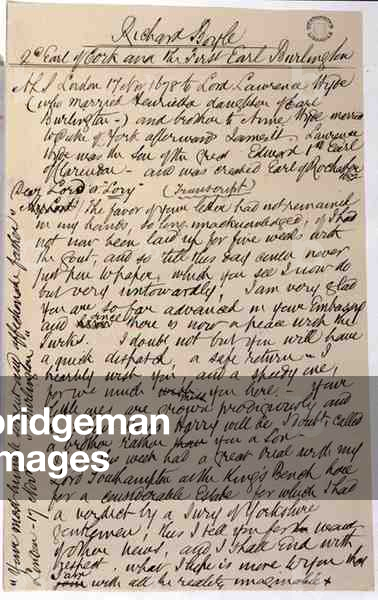 Richard Boyle
2nd Earl of Cork and the First Earl Burlington
ALS London 17 Nov 1678 to Lord Lawrence Hyde
(who married Henrietta daughter of Earl
Burlington -) and brother to Anne Hyde married
to Duke of York afterward James II Lawrence
Hyde was the son of the Great Edward 1st Earl
of Clarendon - and was created Earl of Rochester
Dear Lord or Lory" (Transcript)
My Lord / The favor of your letter had not remained
in my hands, so long unacknowledged, if I had
not now been laid up for five weeks with
the Gout, and so till this day could never
put pen to paper, which you see I now do
but very untowardly! I am very glad
you are so far advanced in your Embassy
and since there is now a peace with the
Turks. I doubt not but you will have
a quick dispatch, a safe return - I
heartily wish you, and a speedy one,
for we much want you here. - Your
little ones are grown prodigiously, and
Harry will be I doubt, called
a brother rather than you a Son -
This week had a Great trial with my
Lord Southampton at the King's Bench
for a considerable Estate for which I had
a verdict by a Jury of Yorkshire
Gentlemen; this I tell you for want
of other news, and I shall End with
respect. what there is more to you that
I am with all the reality imaginable &
"Your most humble and affectionate father"
London - 17 Nov Burlington"
bridgeman
images